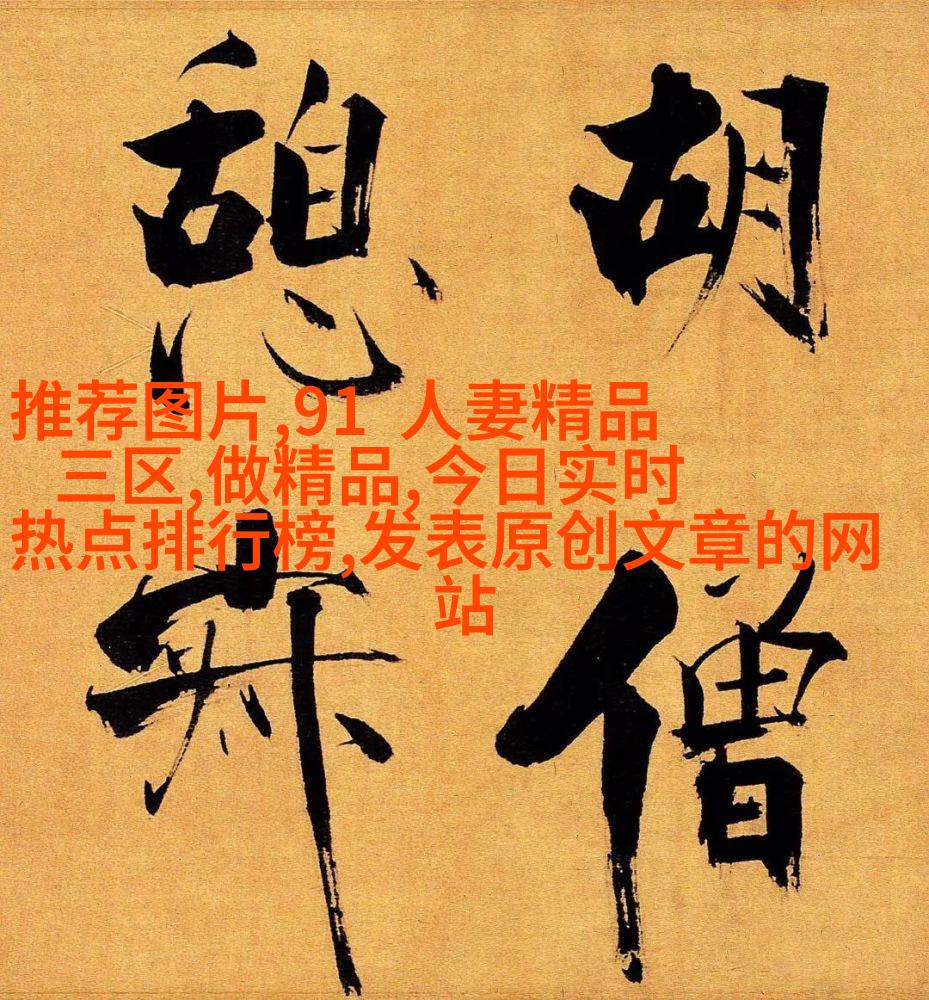 胡僧
憩寂
推荐图片,91 人妻精品
三区,做精品,今日实时
热点排行榜,发表原创文章的网
站